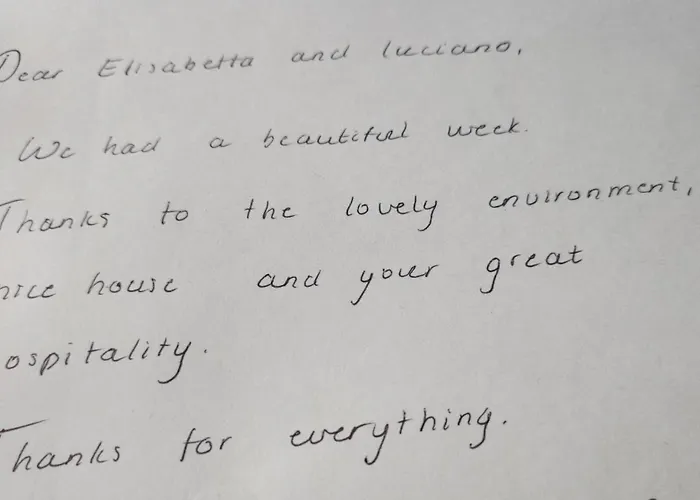 Dear Elisabetta and Luciano,
We had a beautiful week.
Thanks to the lovely environment,
nice house and your great
ospitality.
Thanks for everything.